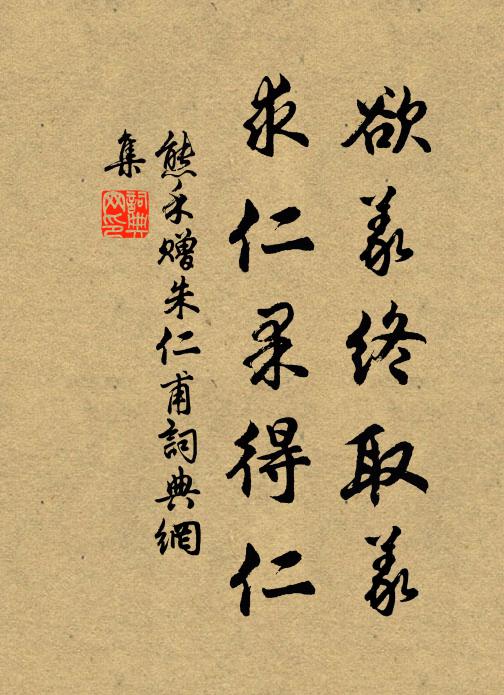 欲義終取義
求仁果得仁
熊禾贈朱仁甫詞典網
集
詞典网印